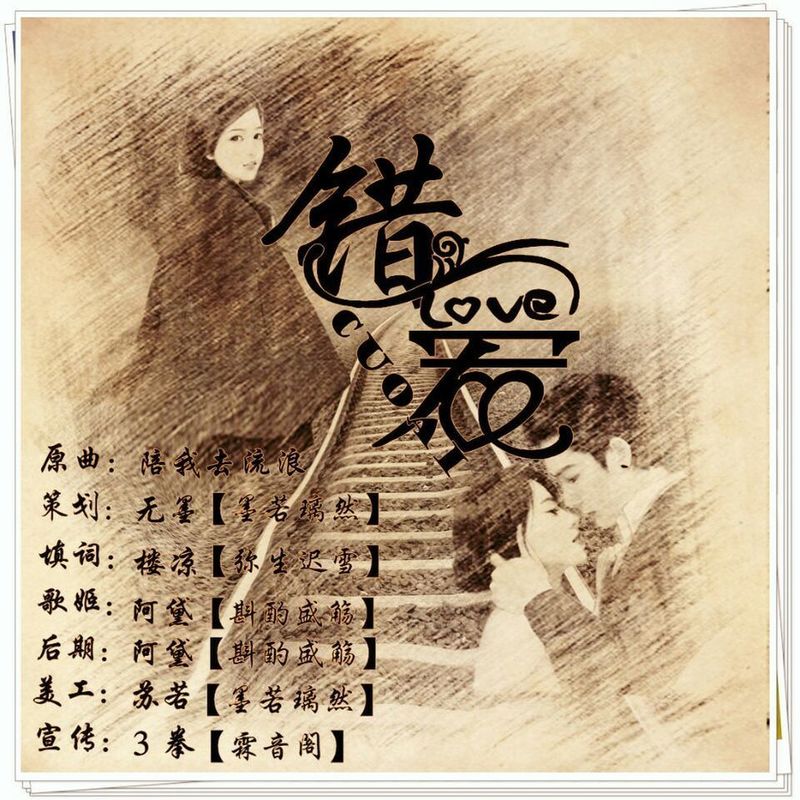 错
love
CUO
原曲：陪我去流浪
策划：无墨【墨若璃然】
填词：楼凉【弥生迟雪】
歌姬：阿黛【斟酌盛觞】
后期：阿黛【斟酌盛觞】
美工：苏若【墨若璃然】
宣传：3拳【霖音阁】